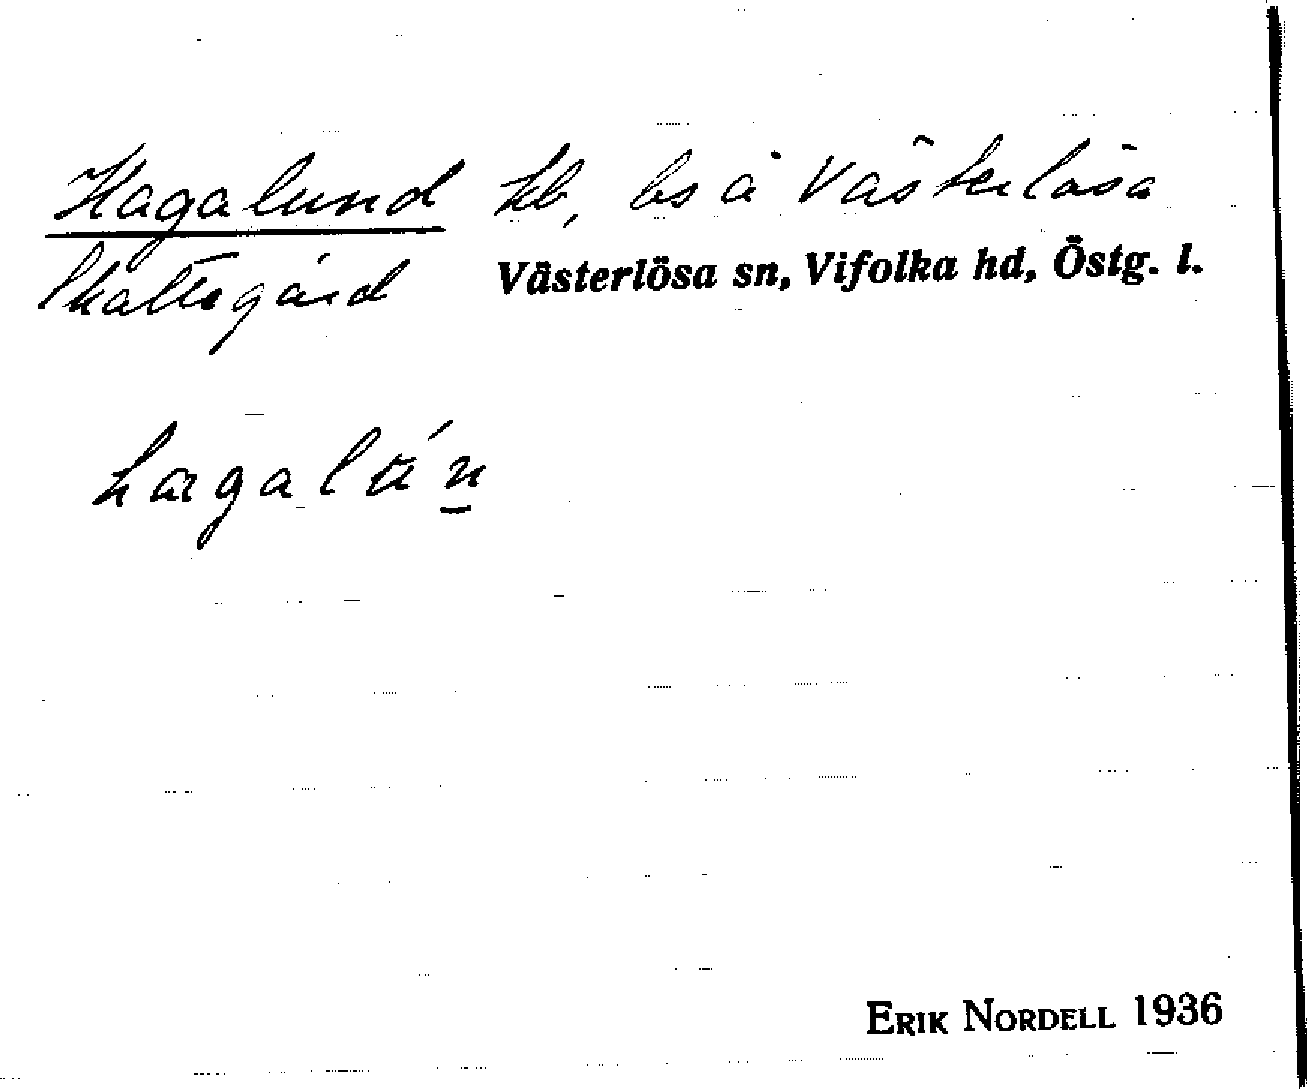 Hagalund hb, bs å Västerlösa
Skattegård Västerlösa sn, Vifolka hd, Östg. l.
hagalún
ERIK NORDELL 1936